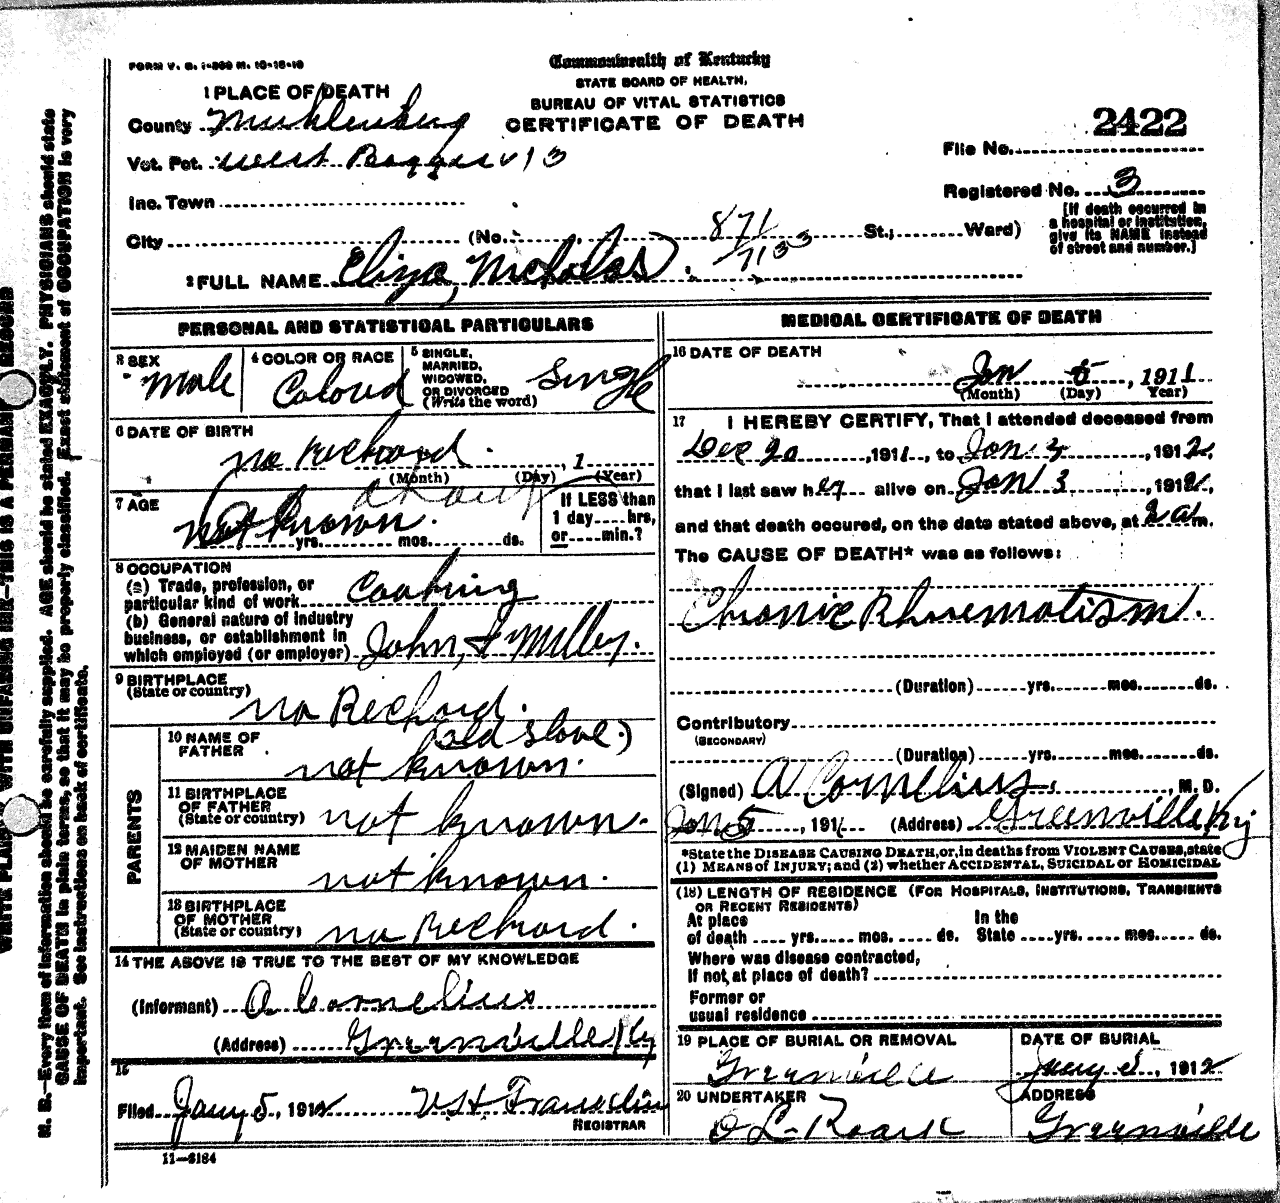 FORM V. S. 1-269 M. 10-15-10
Commonwealth of Kentucky
STATE BOARD OF HEALTH,
BUREAU OF VITAL STATISTICS
CERTIFICATE OF DEATH
1 PLACE OF DEATH
County Muhlenberg
Vot. Pct. West 13
Inc. Town
City (No. 871 St.; Ward)
7133
2422
File No.
Registered No. 3
[If death occurred in
a hospital or institution,
give its NAME instead
of street and number.]
2 FULL NAME Eliza, Nicholas.
PERSONAL AND STATISTICAL PARTICULARS
3 SEX
Male
4 COLOR OR RACE
Colord
5 SINGLE,
MARRIED,
WIDOWED,
OR DIVORCED
(Write the word)
Single
6 DATE OF BIRTH
no Rechord. , 1
(Month) (Day) (Year)
7 AGE
not known.
yrs. mos. ds.
If LESS than
1 day....hrs,
or....min.?
8 OCCUPATION
(a) Trade, profession, or
particular kind of work Cooking
(b) General nature of industry
business, or establishment in
which employed (or employer) John, Milby.
9 BIRTHPLACE
(State or country)
no Rechord.
(old slave.)
PARENTS
10 NAME OF
FATHER
not known.
11 BIRTHPLACE
OF FATHER
(State or country)
not known.
12 MAIDEN NAME
OF MOTHER
not known.
13 BIRTHPLACE
OF MOTHER
(State or country)
no Rechord.
14 THE ABOVE IS TRUE TO THE BEST OF MY KNOWLEDGE
(Informant) A Cornelius
(Address) Greenville Ky
15
Filed Jany 5, 1912
REGISTRAR
11-3184
MEDICAL CERTIFICATE OF DEATH
16 DATE OF DEATH
Jan 5, 1911
(Month) (Day) Year)
17 I HEREBY CERTIFY, That I attended deceased from
Dec 20, 1911, to Jan 3, 1912,
that I last saw her alive on Jan 3, 1912,
and that death occured, on the date stated above, at 2 a.m.
The CAUSE OF DEATH* was as follows:
Chronic Rhuematism.
(Duration) yrs. mos. ds.
Contributory
(SECONDARY)
(Duration) yrs. mos. ds.
(Signed) A Cornelius, M. D.
Jan 5, 191 (Address) Greenville Ky
*State the DISEASE CAUSING DEATH, or, in deaths from VIOLENT CAUSES, state
(1) MEANS of INJURY; and (2) whether ACCIDENTAL, SUICIDAL or HOMICIDAL
(18) LENGTH OF RESIDENCE (FOR HOSPITALS, INSTITUTIONS, TRANSIENTS
OR RECENT RESIDENTS)
At place In the
of death .... yrs. mos. ds. State yrs. mos. ds.
Where was disease contracted,
If not, at place of death?
Former or
usual residence
19 PLACE OF BURIAL OR REMOVAL
Greenville
DATE OF BURIAL
Jany 5, 1912
20 UNDERTAKER
O L. Roark
ADDRESS
Greenville
N. B.—Every item of information should be carefully supplied. AGE should be stated EXACTLY. PHYSICIANS should state
CAUSE OF DEATH in plain terms, so that it may be properly classified. Exact statement of OCCUPATION is very
important. See instructions on back of certificate.